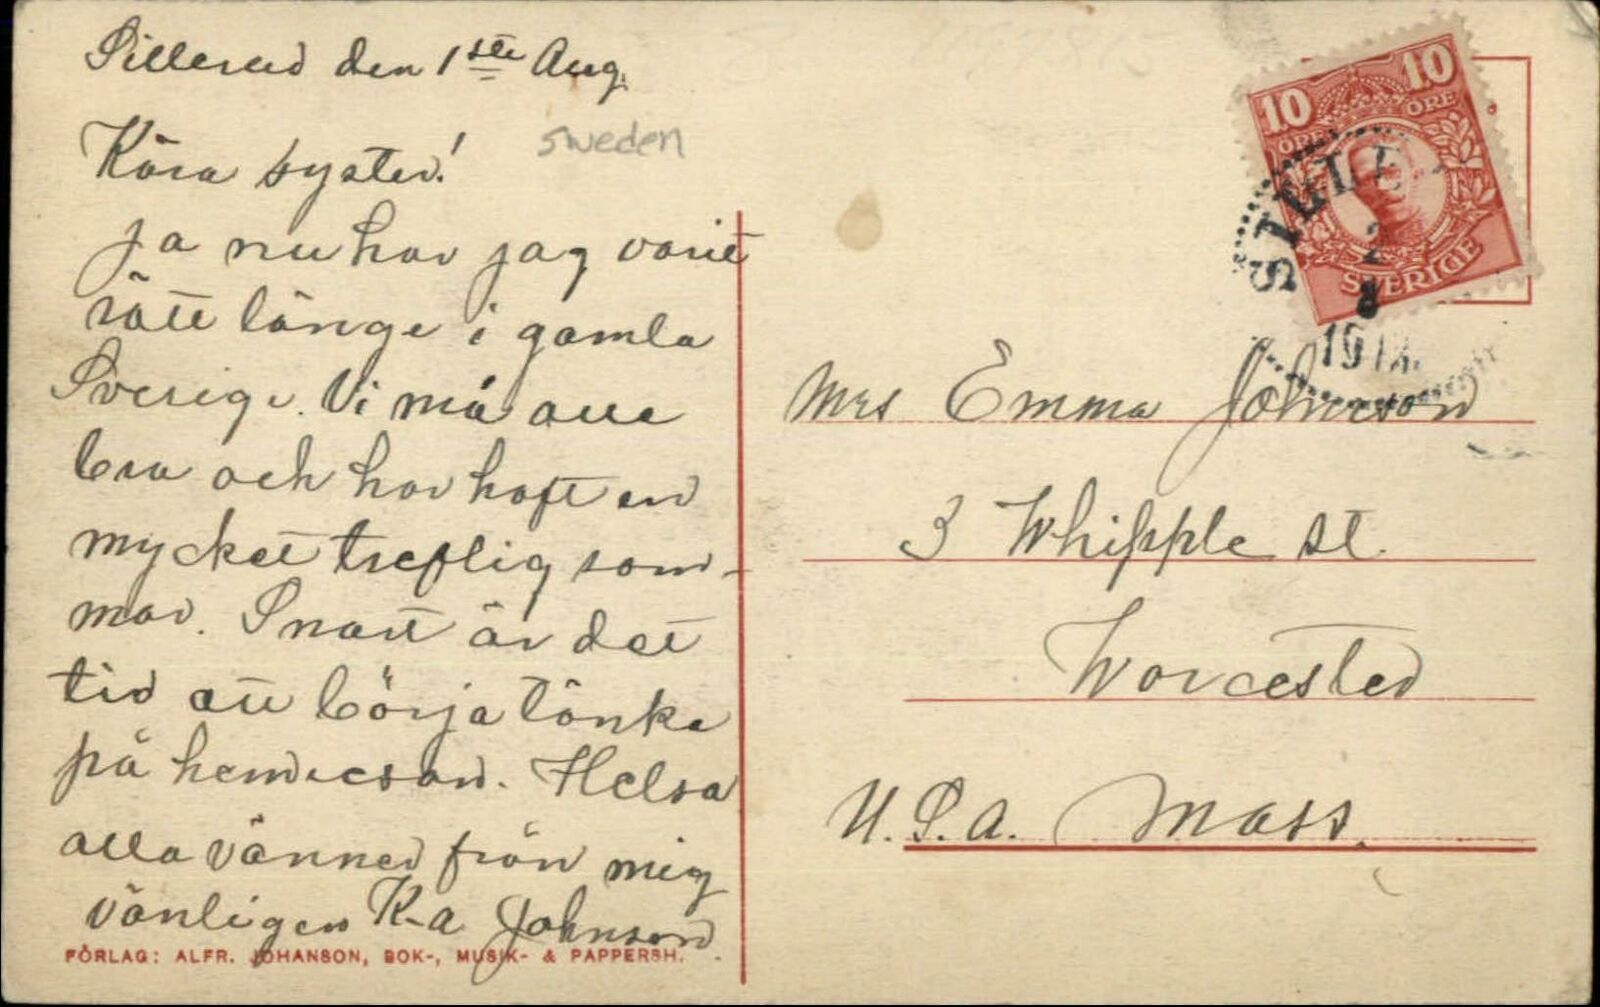 Sillerud den 1ste Aug.
sweden
Kära syster!
Ja nu har jag varit
rätt länge i gamla
Sverige. Vi må alla
bra och har haft en
mycket treflig som-
mar. Snart är det
tid att börja tänka
på hemresan. Helsa
alla vänner från mig
vänligen K-a Johnson
FÖRLAG: ALFR. JOHANSON, BOK-, MUSIK- & PAPPERSH.
10 10
ÖRE ÖRE
SVERIGE
SILLE
2
8
Mrs Emma Johnson
3 Whipple st.
Worcester
U.S.A. Mass.